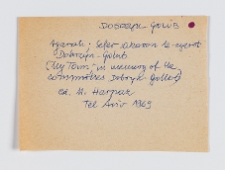 DOBRZYŃ - GOLUB
Ayarati; Sefer zikaron le-ayarot
Dobrzyn - Golub
(My Town; in memory of the
communities Dobrzyn - Gollob)
ed. M. Harpaz
Tel Aviv 1969